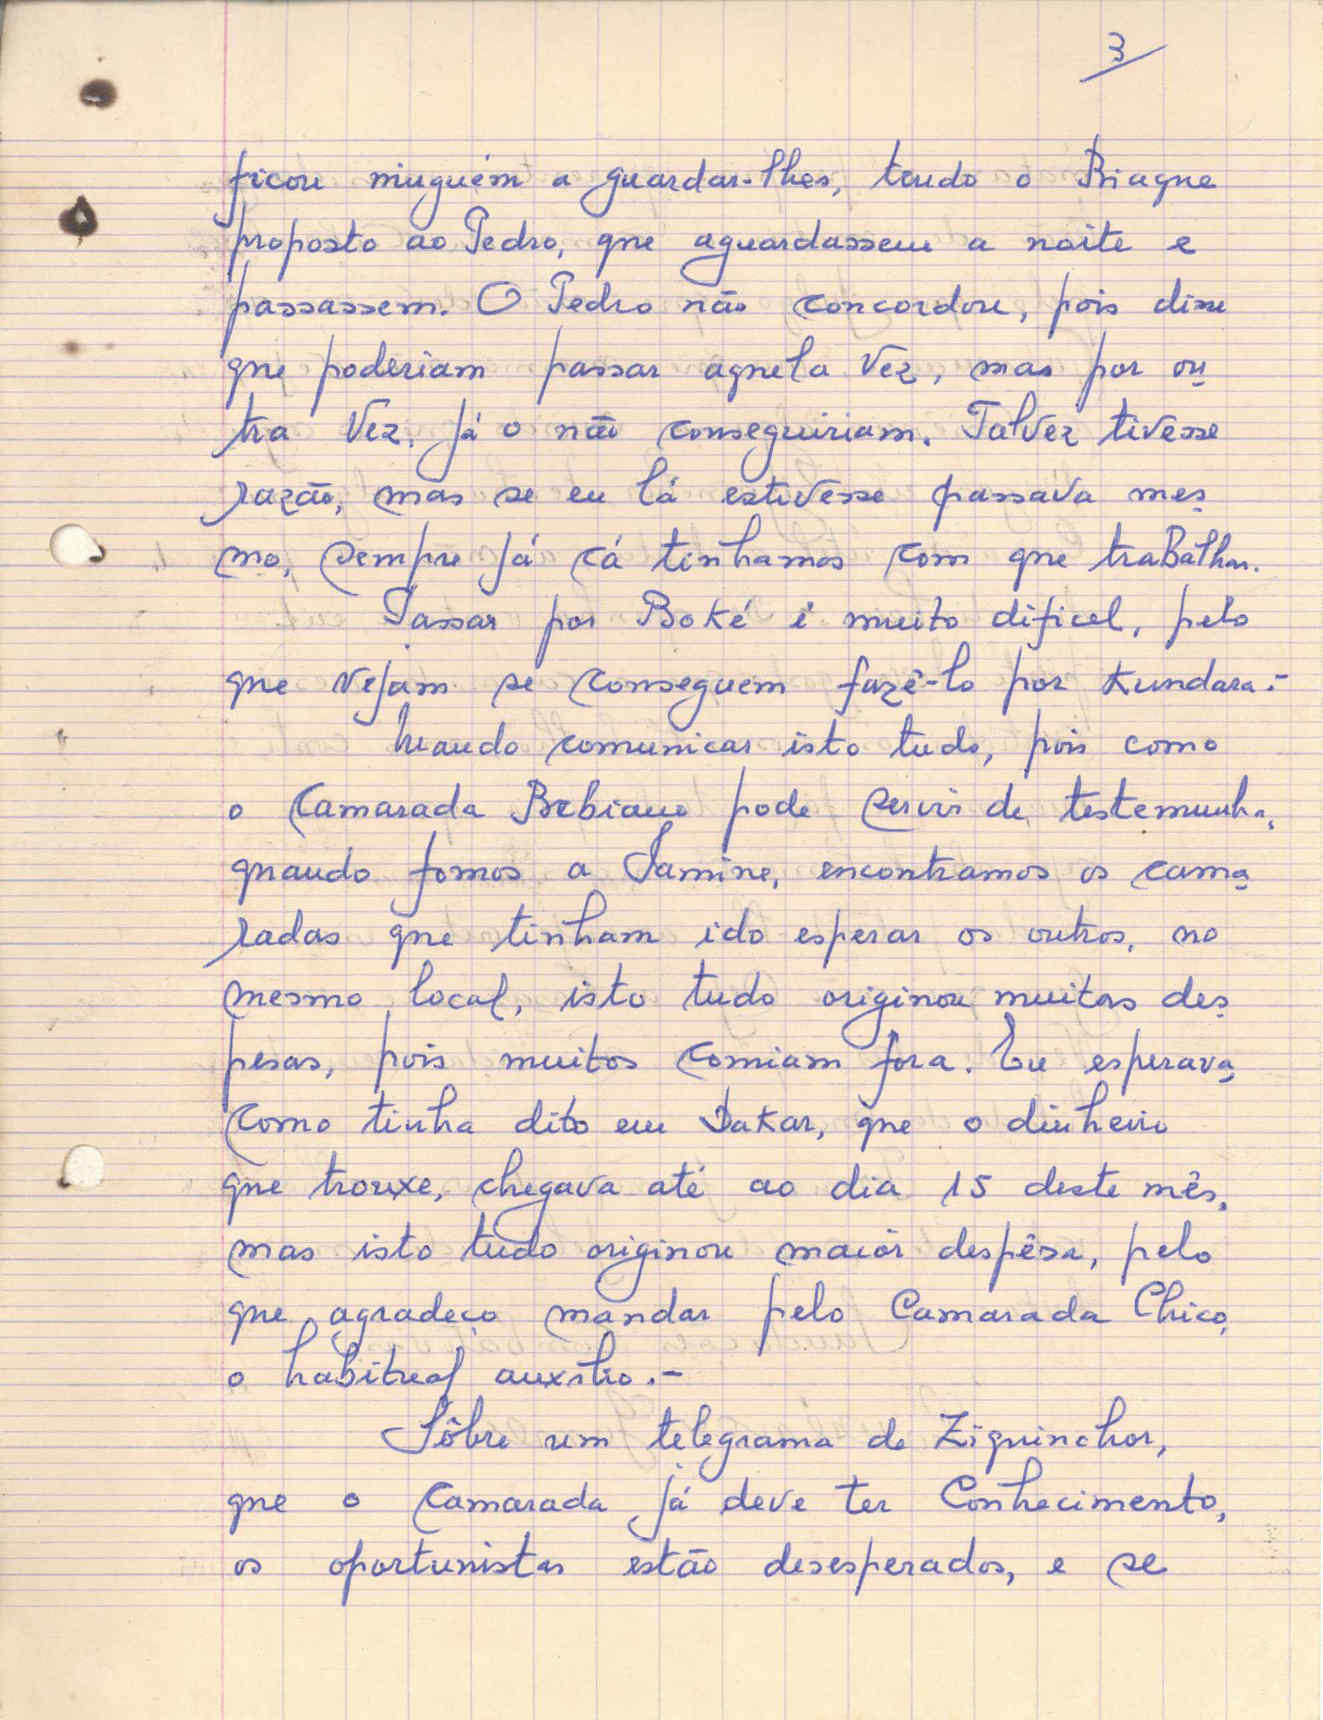 3
ficou ninguém a guardar-lhes, tendo o Biague
proposto ao Pedro, que aguardassem a noite e
passassem. O Pedro não concordou, pois disse
que poderiam passar aquela vez, mas por ou
tra vez, já o não conseguiriam. Talvez tivesse
razão, mas se eu lá estivesse passava mes
mo, sempre já cá tinhamos com que trabalhar.
Passar por Boké é muito dificel, pelo
que vejam se conseguem fazê-lo por Kundara.-
Mando comunicar isto tudo, pois como
o Camarada Bebiano pode servir de testemunha,
quando fomos a Samine, encontramos os cama
radas que tinham ido esperar os outros, no
mesmo local, isto tudo originou muitas des
pesas, pois muitos comiam fora. Eu esperava,
como tinha dito em Dakar, que o dinheiro
que trouxe, chegava até ao dia 15 deste mês,
mas isto tudo originou maiór despêsa, pelo
que agradeço mandar pelo Camarada Chico,
o habitual auxílio.-
Sôbre um telegrama de Ziguinchor,
que o Camarada já deve ter Conhecimento,
os oportunistas estão desesperados, e se